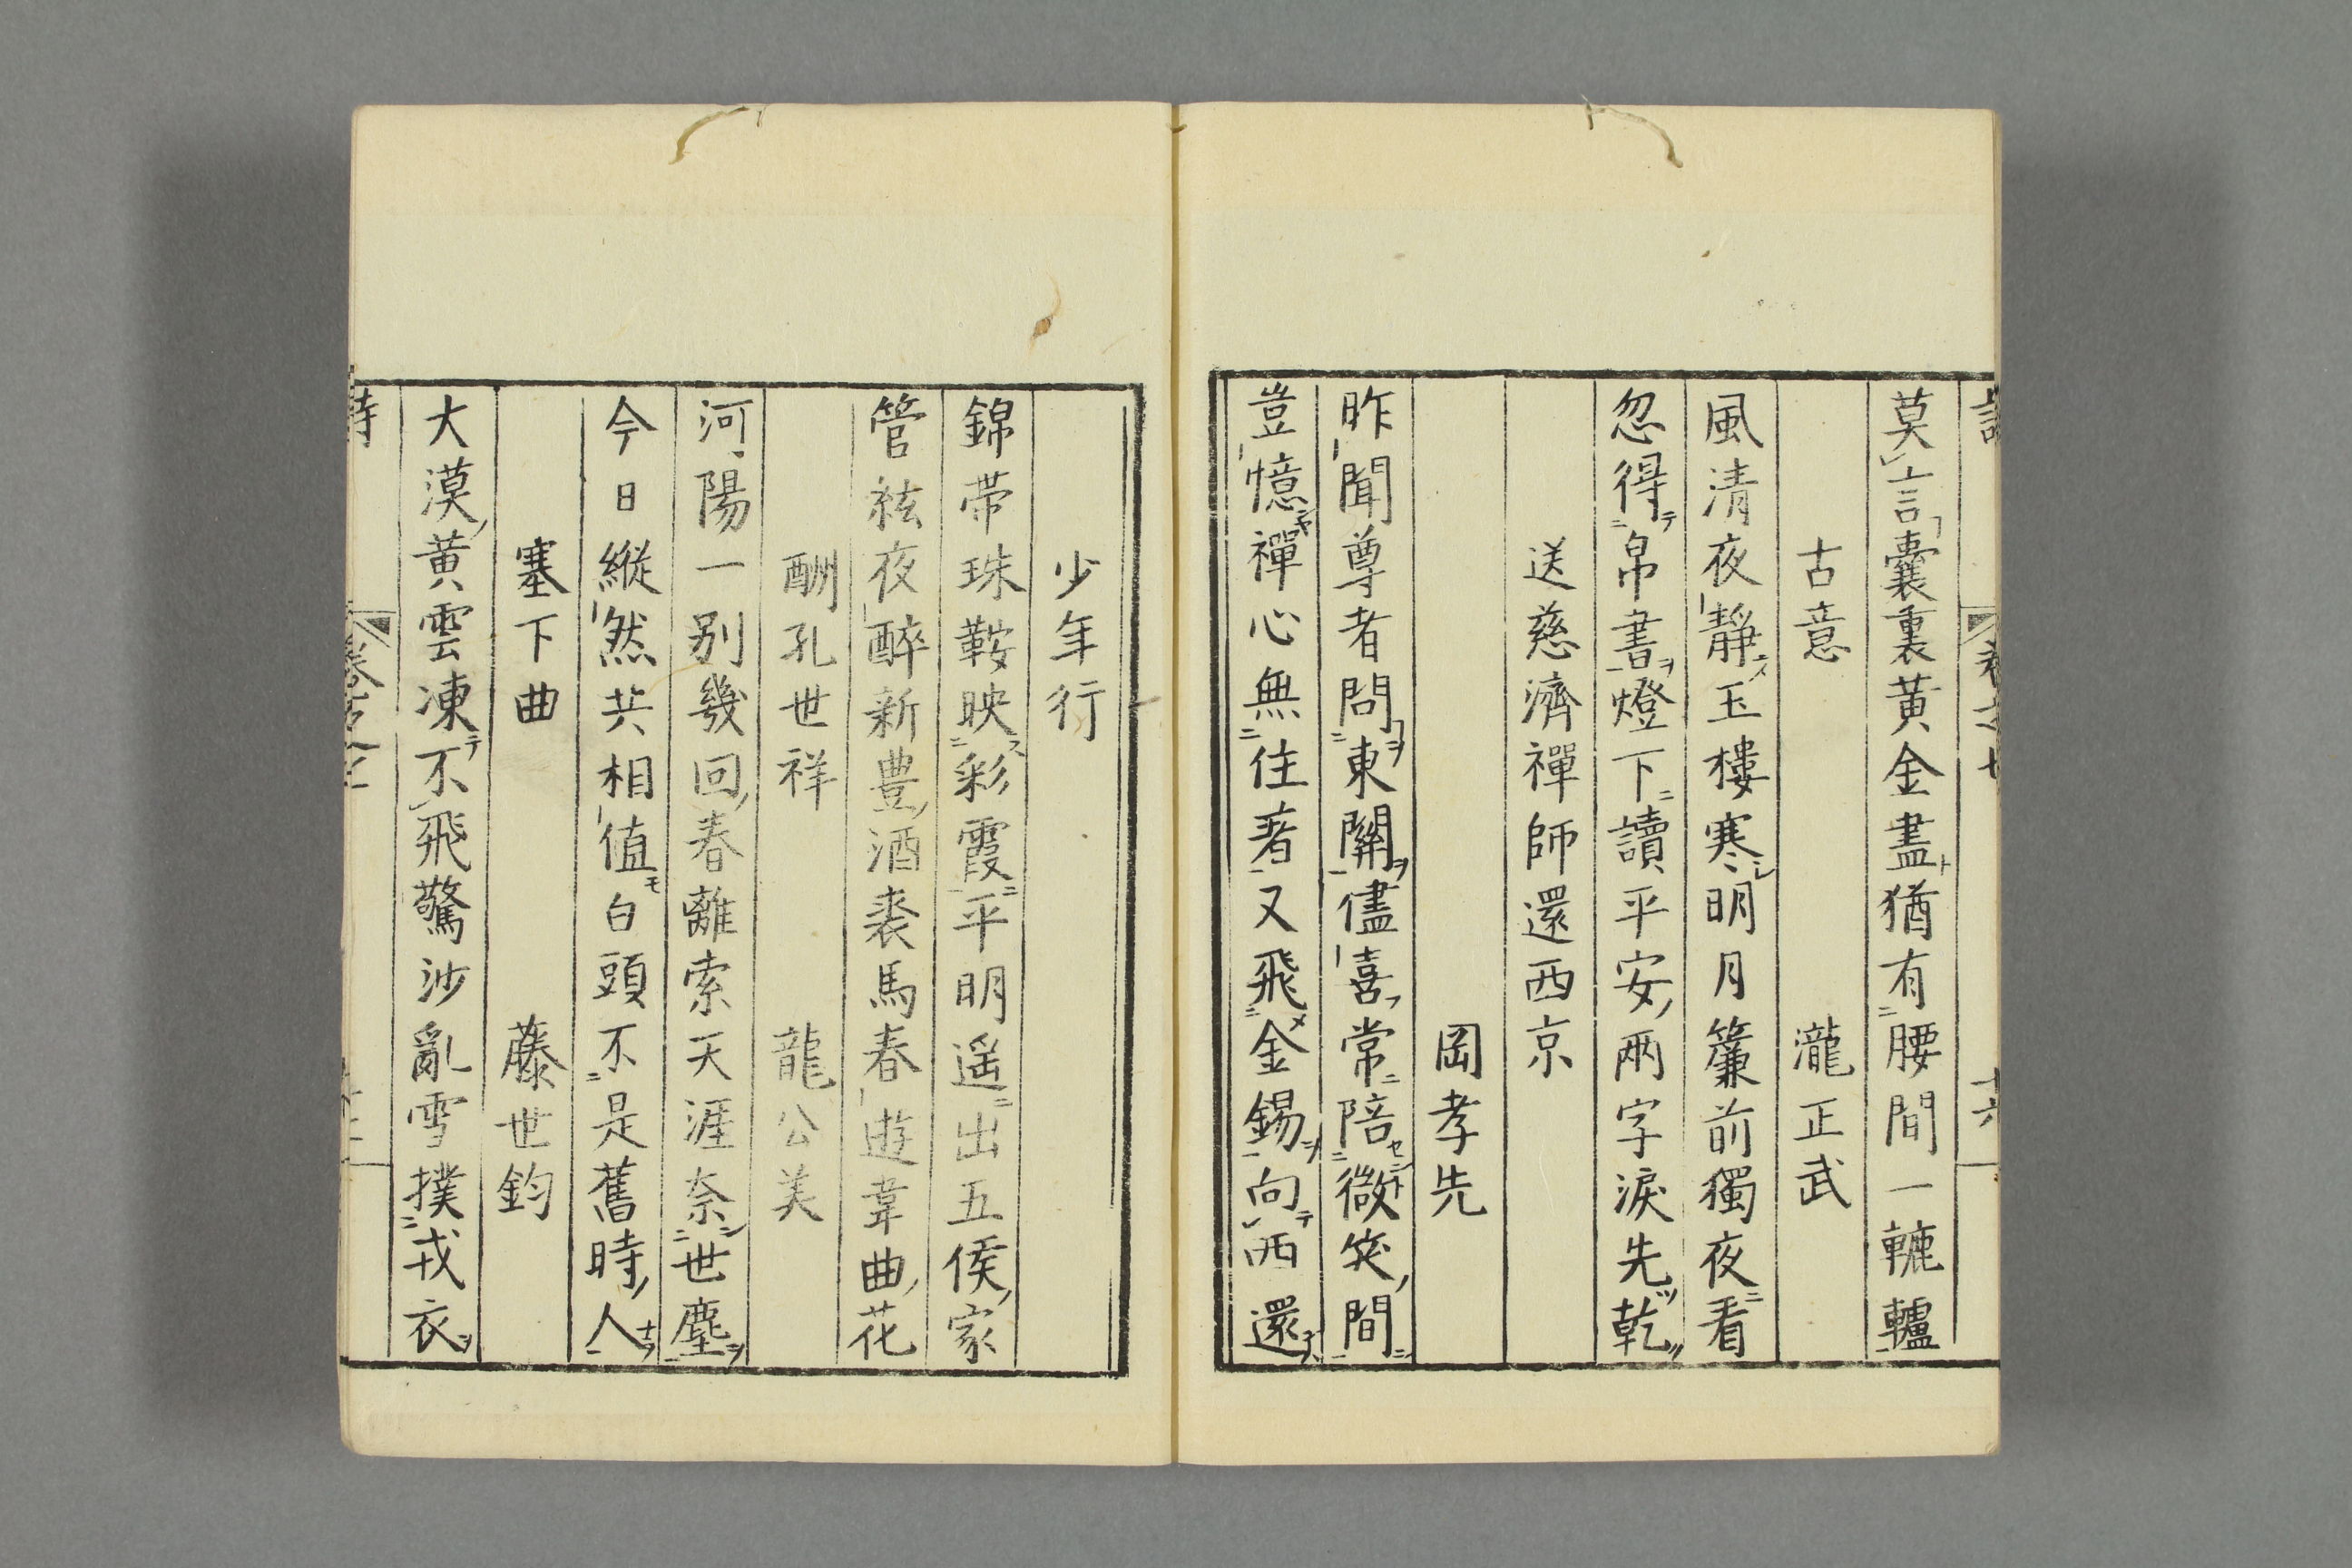 莫言囊裏黄金盡猶有腰間一轆轤
古意　瀧正武
風清夜靜玉樓寒明月簾前獨夜看
忽得帛書燈下讀平安兩字淚先乾
送慈濟禪師還西京
岡孝先
昨聞尊者問東關儘喜常陪微笑間
豈憶禪心無住著又飛金錫向西還
少年行
錦帶珠鞍映彩霞平明遥出五侯家
管絃夜醉新豊酒裘馬春遊韋曲花
酬孔世祥　龍公美
河陽一別幾回春離索天涯奈世塵
今日縱然共相值白頭不是舊時人
塞下曲　藤世鈞
大漠黄雲凍不飛驚沙亂雪撲戎衣